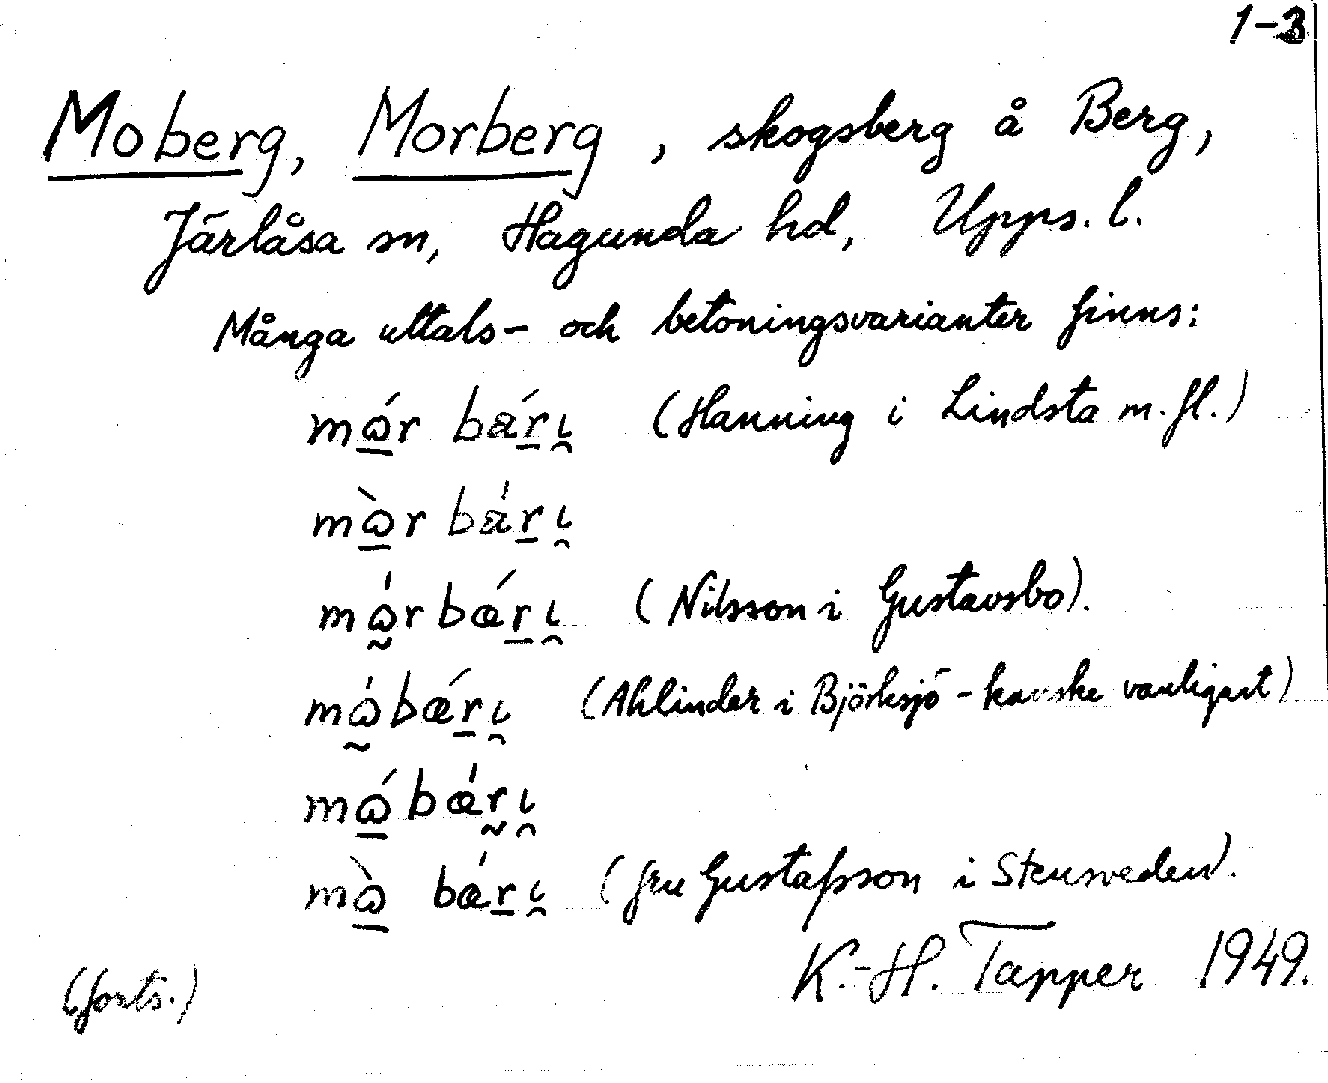 1-3
Moberg, Morberg, skogsberg å Berg,
Järlåsa sn, Hagunda hd, Upps. l.
Många uttals- och betoningsvarianter finns:
mɷ́r bǽrɩ (Hanning i Lindsta m. fl.)
mɷ̀r bæ̍rɩ
mɷ̍rbǽrɩ (Nilsson i Gustavsbo).
mɷ̍bǽrɩ (Ahlinder i Björksjö - kanske vanligast)
mɷ́bæ̍rɩ
mɷ̀ bæ̍rɩ (fru Gustafsson i Stensveden).
K.-H. Tapper 1949.
(forts.)